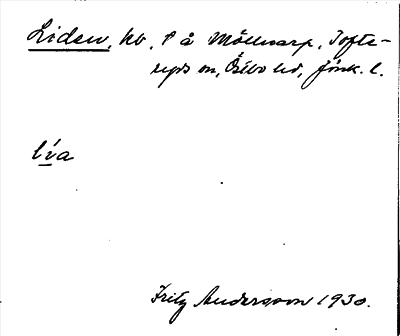 Liden, hb, P å Möllnarp, Tofte-
ryds sn, Östbo hd, Jönk. l.
lía
Fritz Andersson 1930.